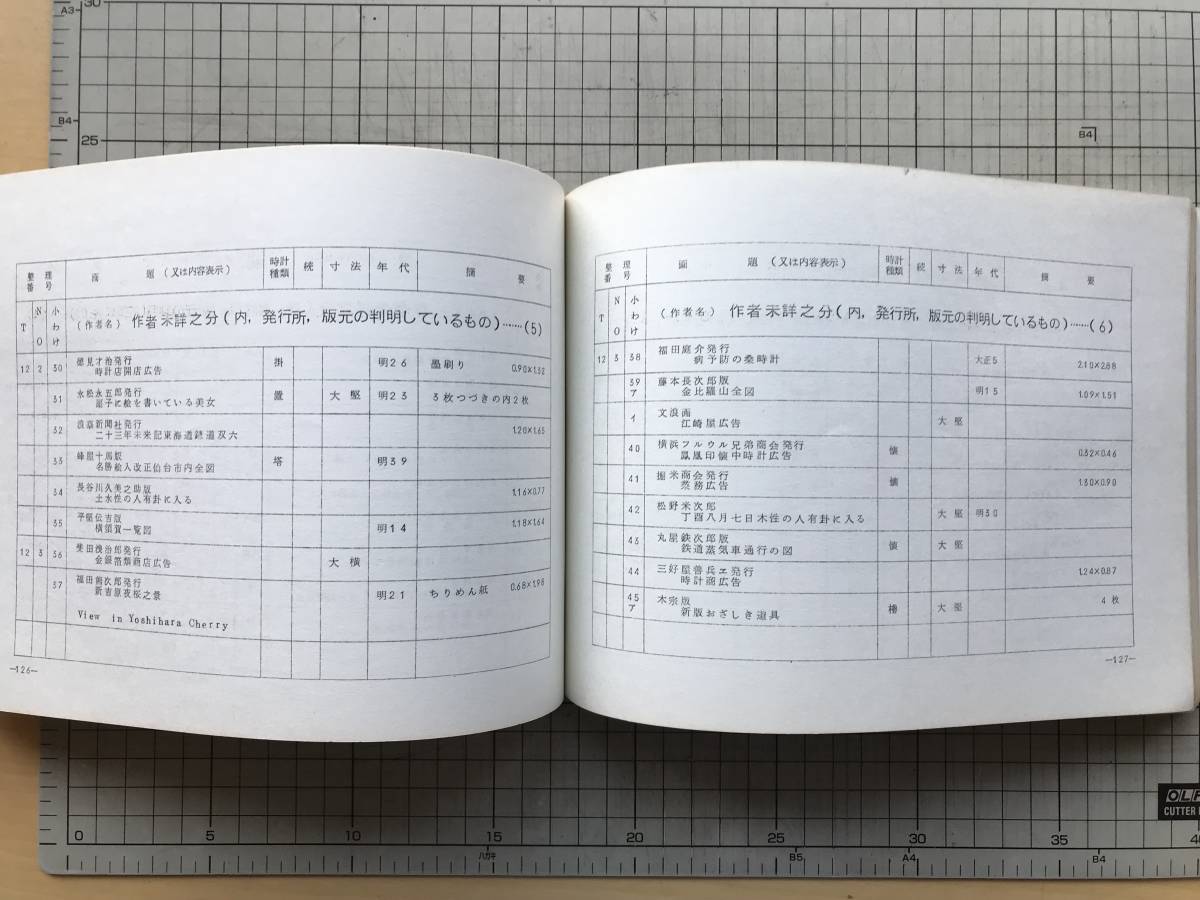 A3
30
B4
25
B4
整理番号
画題(又は内容表示)
時計種類
続
寸法
年代
摘要
T
N O
小わけ
(作者名) 作者未詳之分(内,発行所,版元の判明しているもの)……(5)
12 2 30
徳見才治発行
時計店開店広告
掛
明26
墨刷り
0.90×1.32
31
永松永五郎発行
扇子に絵を書いている美女
置
大堅
明23
3枚つづきの内2枚
32
浪華新聞社発行
二十三年未来記東海道鉄道双六
1.20×1.65
33
蜂屋十馬版
名勝絵入改正仙台市内全図
塔
明39
34
長谷川久美之助版
土水性の人有卦に入る
1.16×0.77
35
平野伝吉版
横須賀一覧図
明14
1.18×1.64
12 3 36
金銀箔類商店広告
大横
37
新吉原夜桜之景
明21
ちりめん紙
0.68×1.98
View in Yoshihara Cherry
—126—
整理番号
画題(又は内容表示)
時計種類
続
寸法
年代
摘要
T
N O
小わけ
(作者名) 作者未詳之分(内,発行所,版元の判明しているもの)……(6)
12 3 38
福田庭介発行
病予防の桑時計
大正5
2.10×2.88
39 ア
藤本長次郎版
金比羅山全図
明15
1.09×1.51
イ
文浪画
江崎屋広告
大堅
40
横浜フルウル兄弟商会発行
鳳凰印懐中時計広告
懐
0.32×0.46
41
堀米商会発行
業務広告
懐
1.30×0.90
42
松野米次郎
丁酉八月七日木性の人有卦に入る
大堅
明30
43
丸屋鉄次郎版
鉄道蒸気車通行の図
懐
大堅
44
三好屋善兵ヱ発行
時計商広告
1.24×0.87
45 ア
木宗版
新版おざしき道具
櫓
大堅
4枚
—127—
OLF
CUTTER
0
5
10
15
20
25
30
35
40
ハガキ
B5
A4
B4